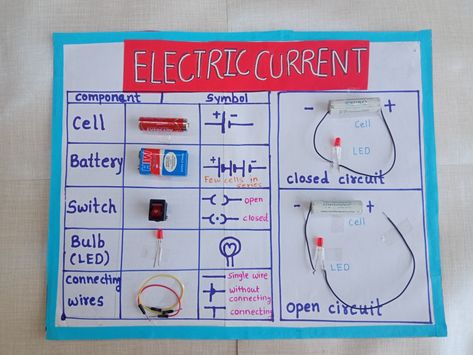 ELECTRIC CURRENT
Component Symbol
Cell
+ -
Battery
HW
+ -
Few cells in
series
Switch
open
closed
Bulb
(LED)
connecting
wires
single wire
without
connecting
connecting
- +
Cell
LED
closed circuit
- +
Cell
LED
open circuit